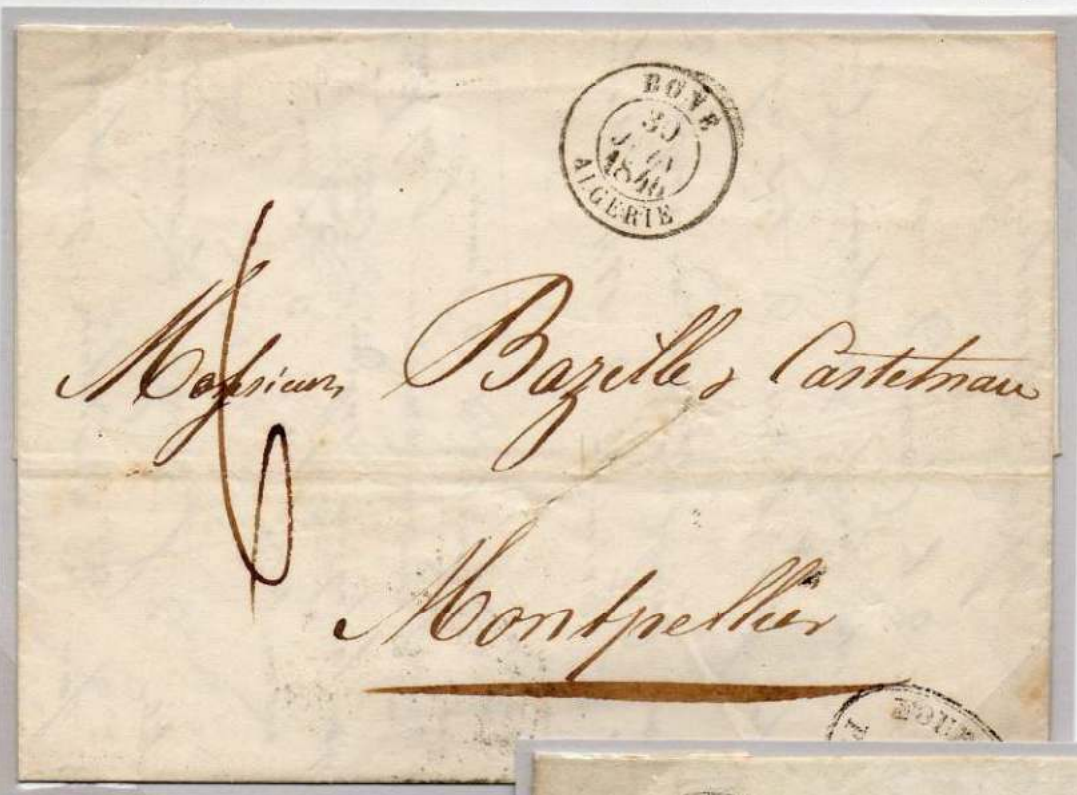 BONE
30
JUIN
1846
ALGERIE
6
Messieurs Bazille & Castelnau
Montpellier